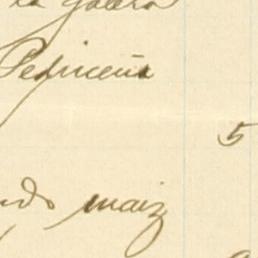 la Galera
Pedriceña
5
ndo maiz